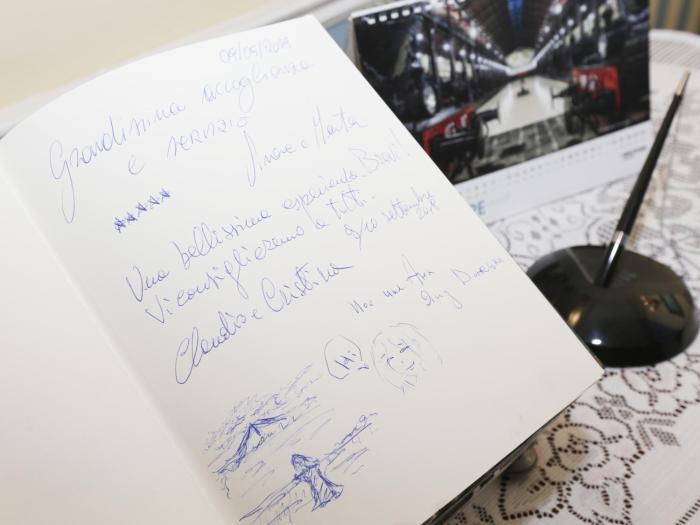 09/09/2018
Grandissima accoglienza
e servizio
e Marta
*****
Una bellissima esperienza. Bravi!
Vi consiglieremo a tutti.
9/10 settembre
2018
Claudio e Cristina
Hi